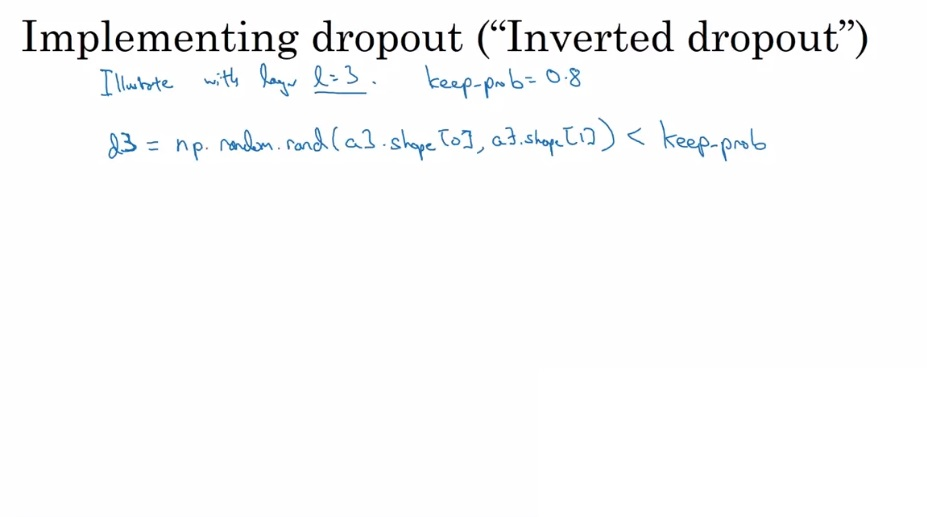 Implementing dropout (“Inverted dropout”)
Illustrate with layer l=3. keep-prob = 0.8
d3 = np.random.rand(a3.shape[0], a3.shape[1]) < keep-prob